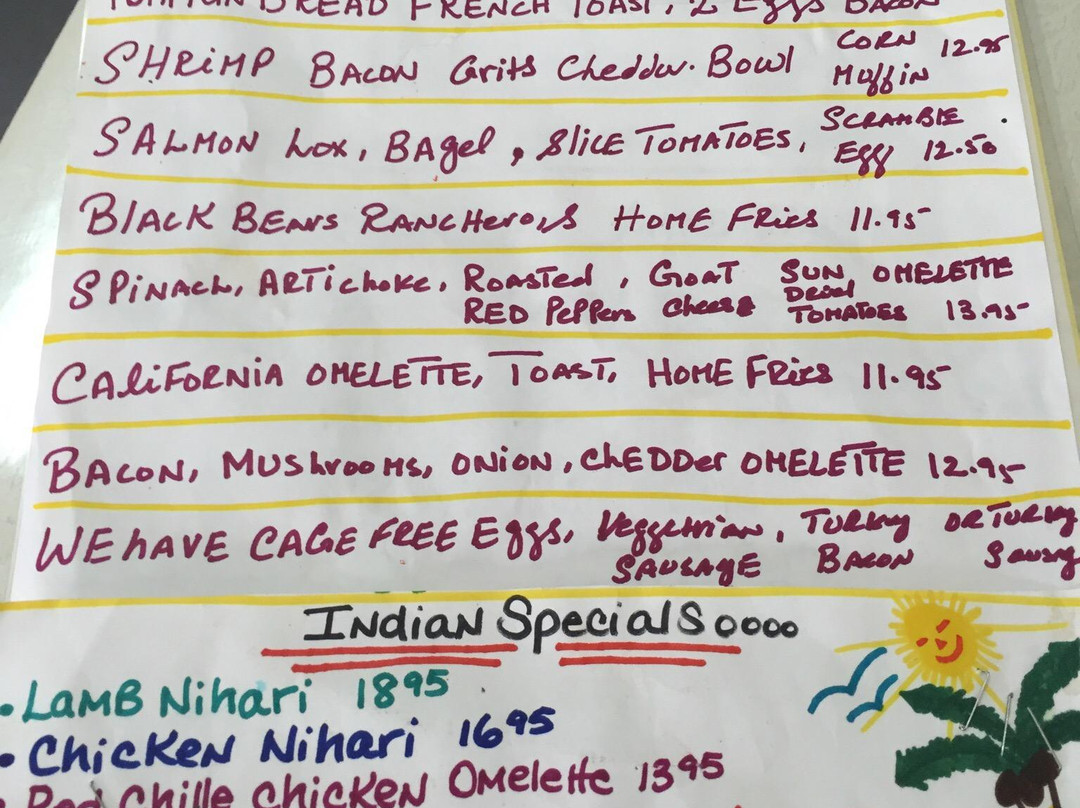 BREAD FRENCH TOAST, 2 Eggs BACON
SHRiMP BACON Grits Cheddar. Bowl CORN Muffin 12.95
SALMON Lox, BAgel, SLICE TOMATOES, SCRAMBLE Egg 12.50
BLACK BEANS RANCHeroiS HOME FRies 11.95
SPiNACh, ARTichoke, Roasted RED PePPers, GOAT Cheese SUN DRied TOMATOES OMELETTE 13.95
CALiFORNiA OMELETTE, TOAST, HOME FRies 11.95
BACON, MUShrooMS, ONiON, ChEDDer OMELETTE 12.95
WE hAVE CAGE FREE Eggs, Veggetrian SAUSAGE, TURKey BACON OR TURKey Sausag
INdiAN SpecialSoooo
• LaMB Nihari 1895
• ChicKeN Nihari 1695
• Red Chille chicKEN Omelette 1395